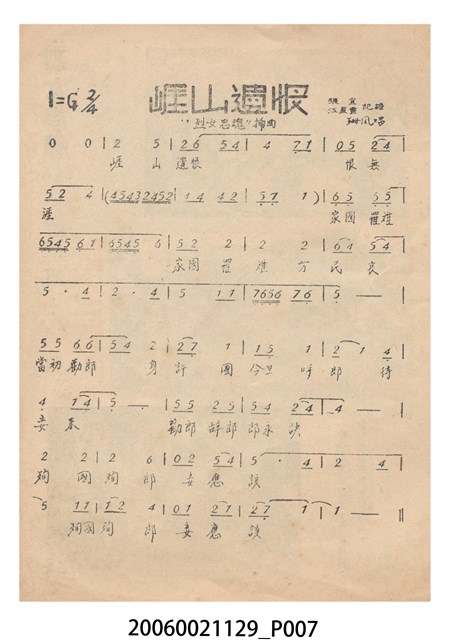 崖山遺恨
1=G 2/4
"烈女忠魂"插曲
記譜
唱
0 0 | 2 5 | 26 54 | 4 71 | 05 24 |
崖 山 遺恨 恨 無
52 4 | (4543 2452 | 14 42 | 57 1 ) | 65 55 |
涯 家國 罹難
6545 61 | 6545 6 | 52 2 | 2 2 | 64 54 |
家國 罹 難 万 民 哀
5 · 4 | 2 · 4 | 5 11 | 7656 76 | 5 — |
55 66 | 54 2 | 27 1 | 15 1 | 2 1 4 |
當初 勸郎 身 許 國 今旦 呼 郎 待
4 14 | 5 — | 55 25 | 54 24 |
妾 來 勸郎 辭郎 郎永 訣
2 2 | 2 6 | 02 54 | 5 · 4 | 2 4 |
殉 國 殉 郎 妾 應 該
5 11 | 12 4 | 01 27 | 21 27 | 1 1 — ‖
殉國 殉 郎 妾 應 該
20060021129_P007